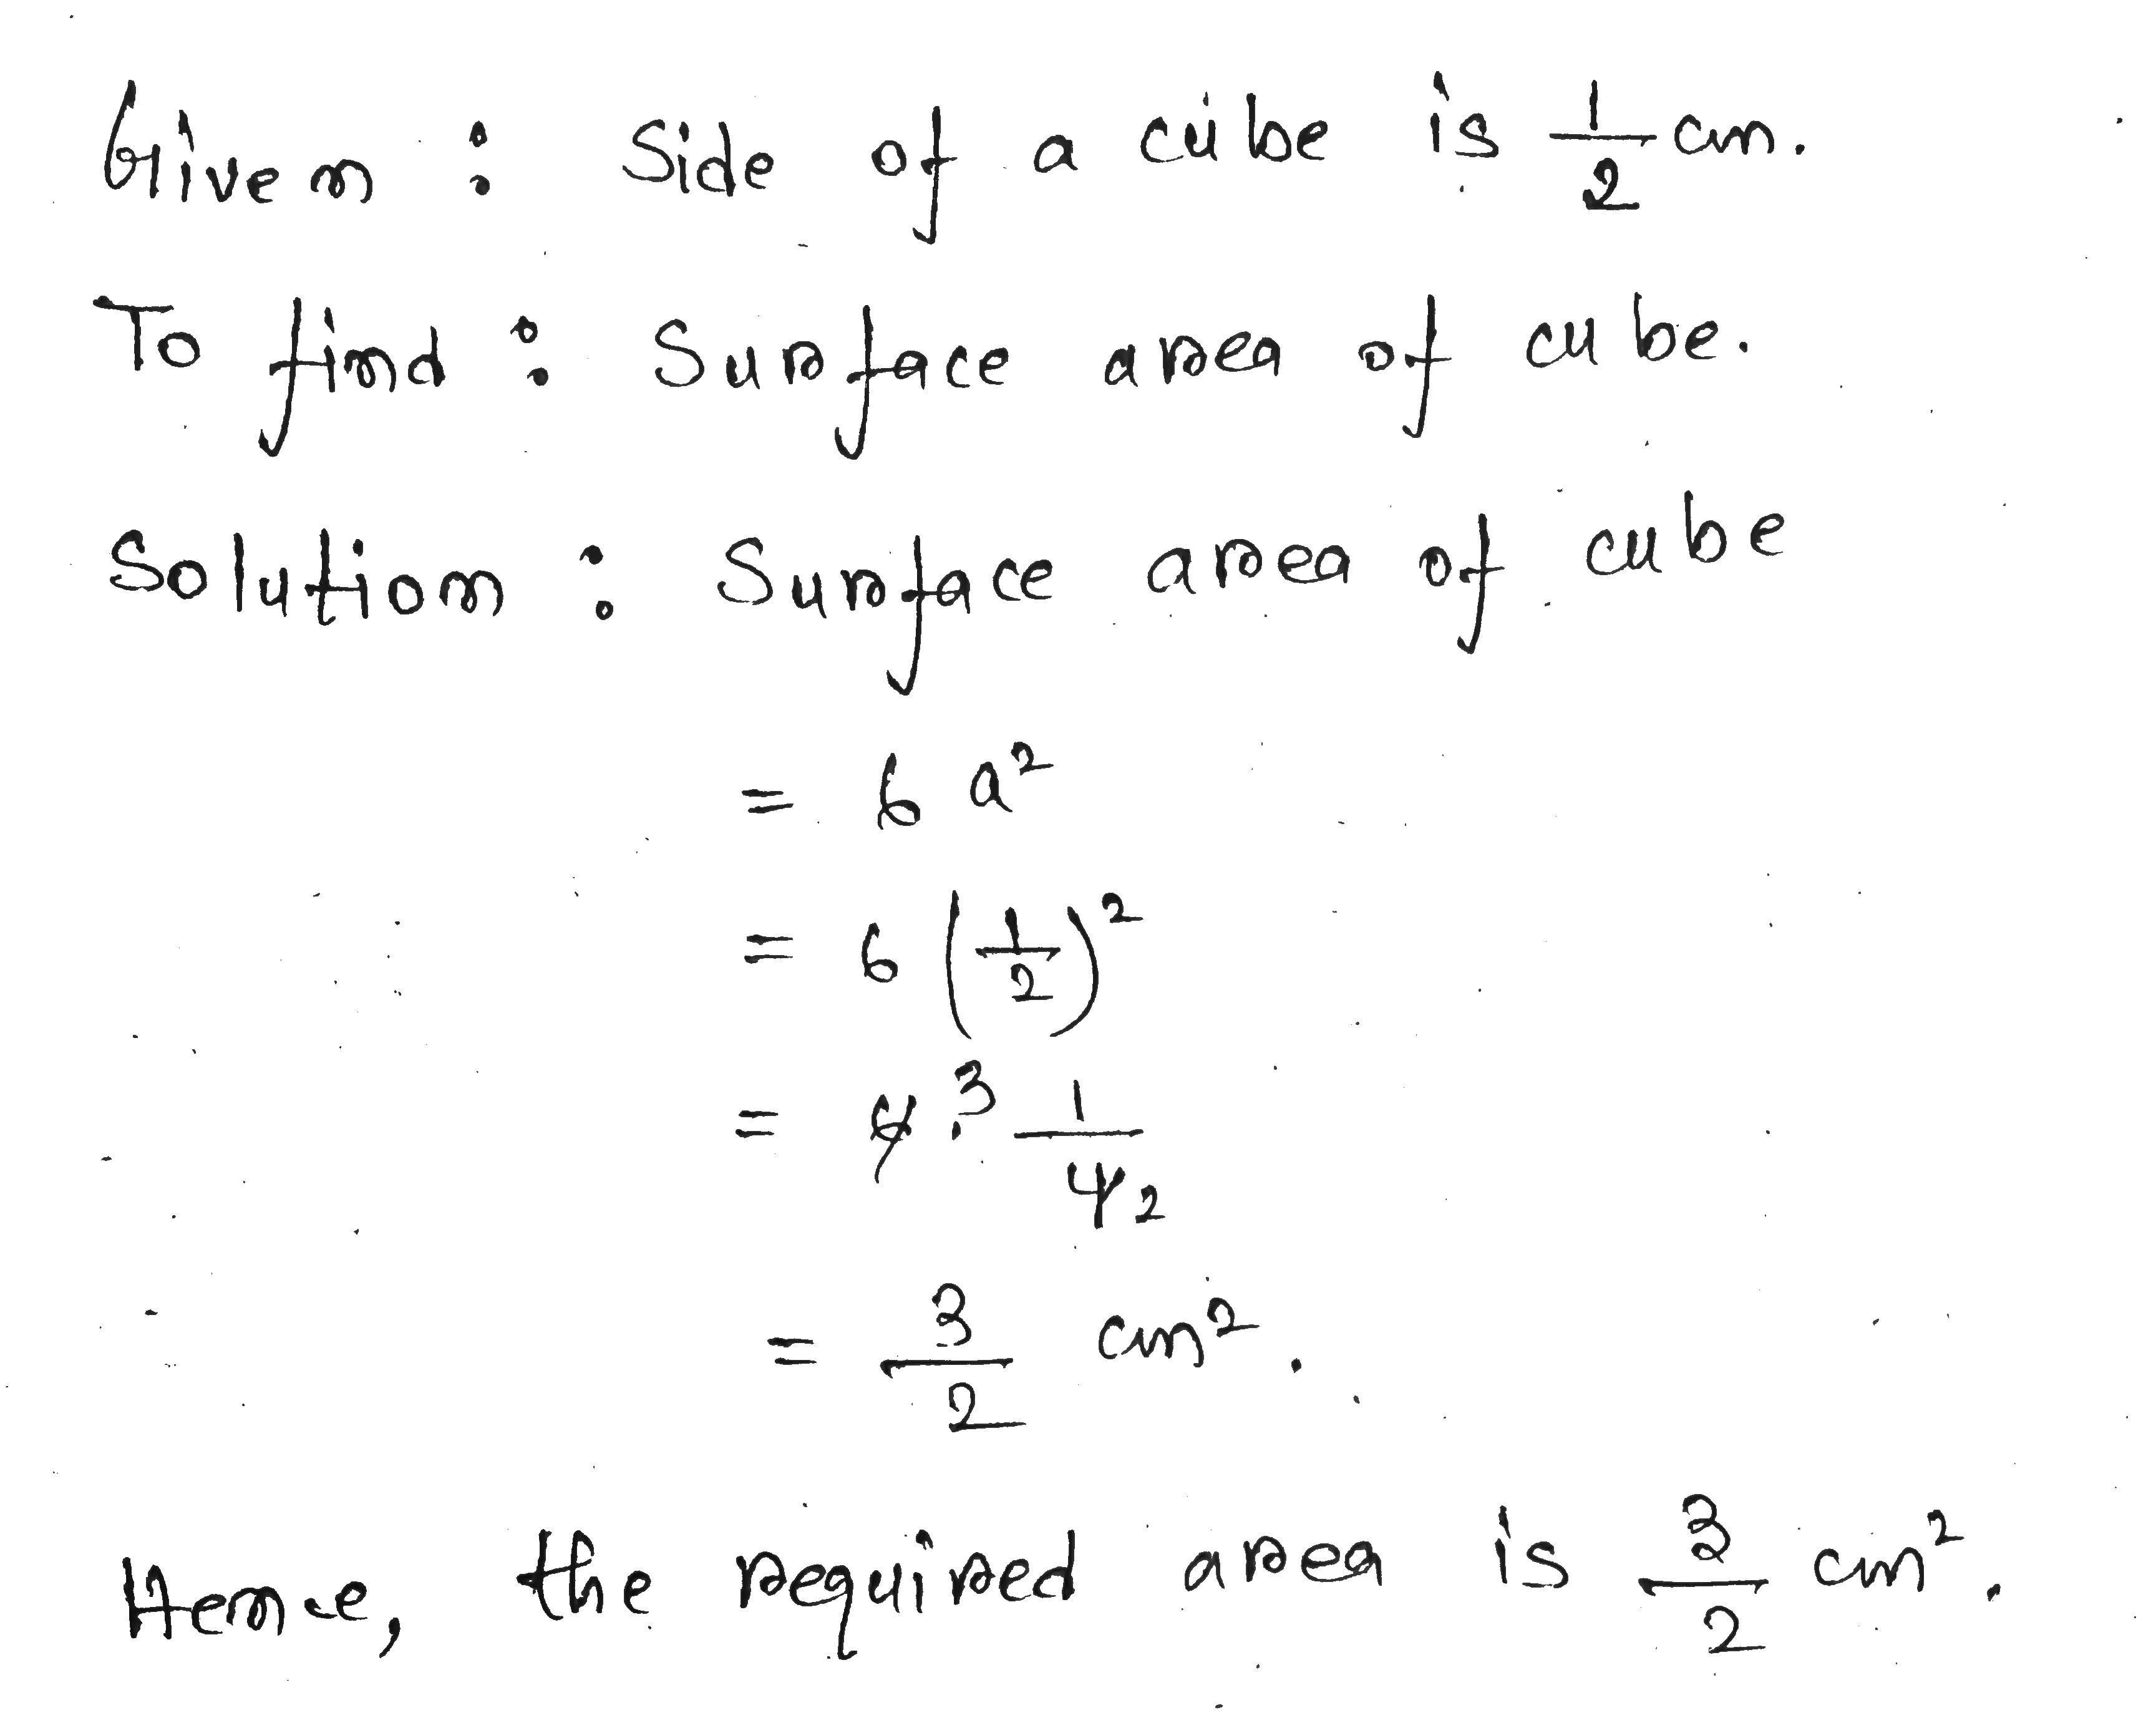 Given : Side of a cube is 1/2 cm.
To find : Surface area of cube.
Solution : Surface area of cube
= 6 a²
= 6 (1/2)²
= 6 3 1/4 2
= 3/2 cm².
Hence, the required area is 3/2 cm².